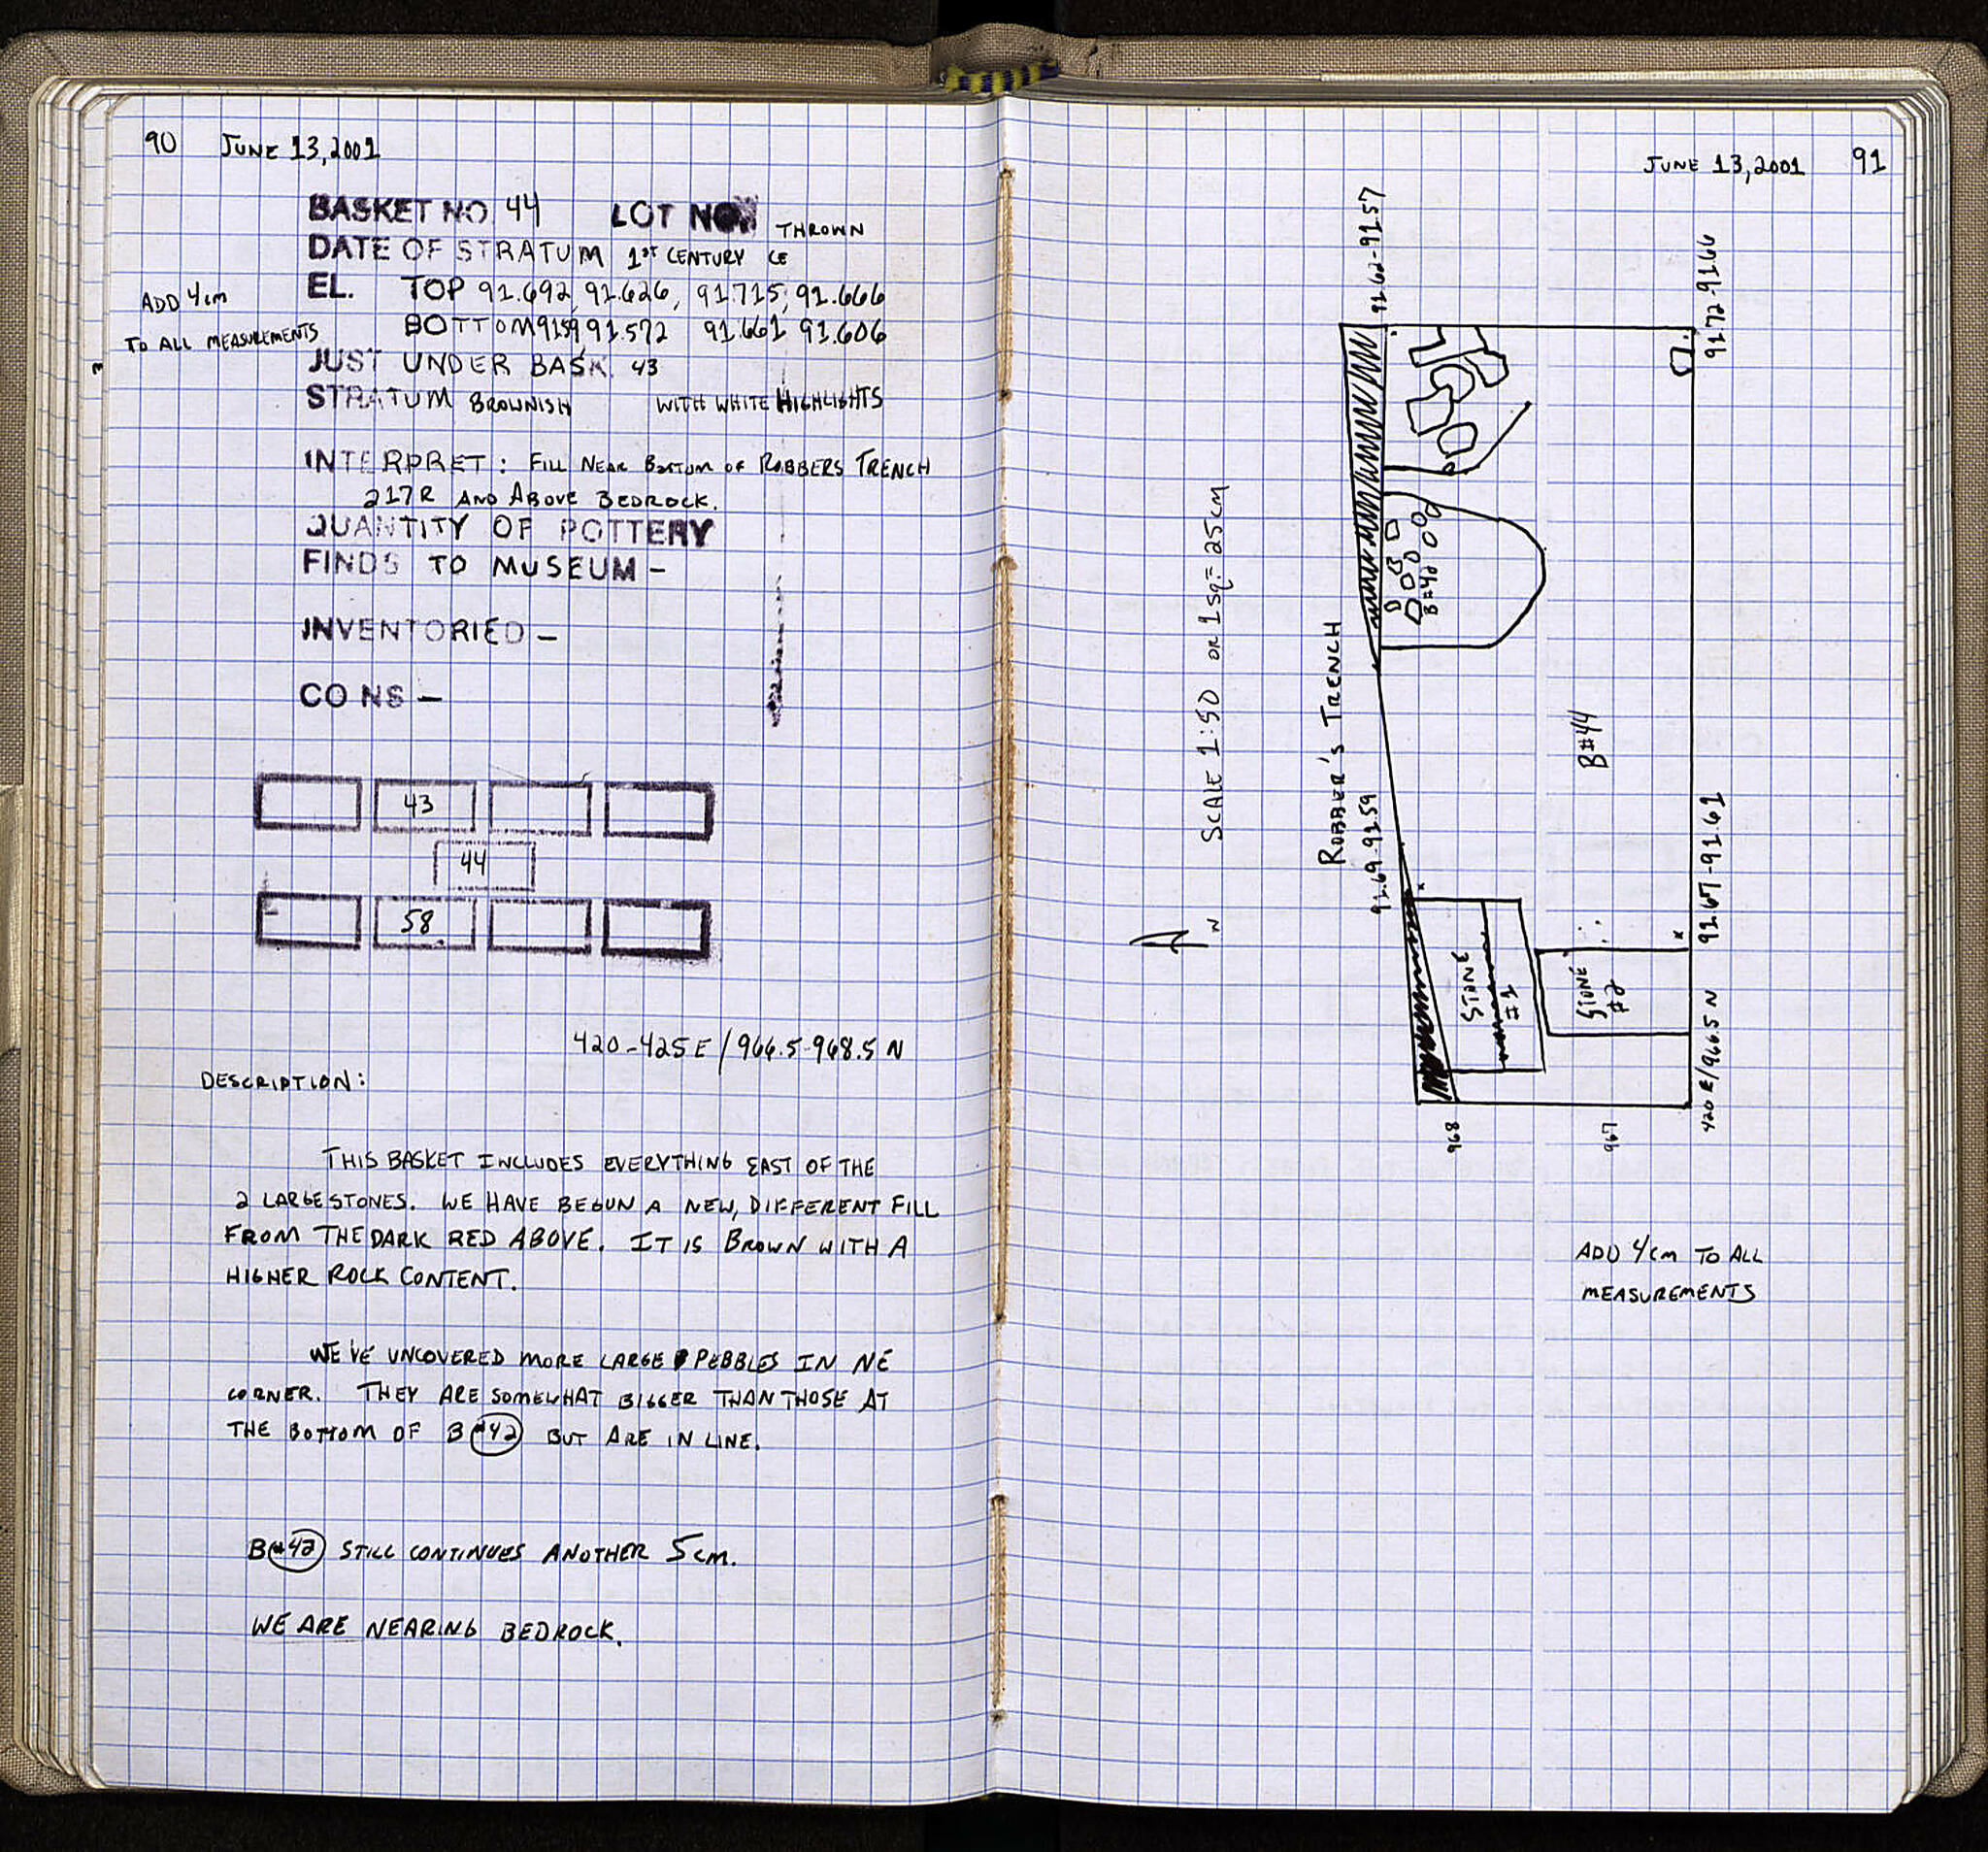 90 JUNE 13, 2001
BASKET NO. 44 LOT NO. THROWN
DATE OF STRATUM 1ST CENTURY CE
EL. TOP 91.692, 91.626, 91.715, 91.666
ADD 4cm
BOTTOM 9159, 91.572 91.661, 91.606
TO ALL MEASUREMENTS
JUST UNDER BASK. 43
STRATUM BROWNISH WITH WHITE HIGHLIGHTS
INTERPRET: FILL NEAR BOTTOM OF ROBBERS TRENCH
217R AND ABOVE BEDROCK.
QUANTITY OF POTTERY
FINDS TO MUSEUM -
INVENTORIED -
CONS -
43
44
58
420-425E / 966.5-968.5 N
DESCRIPTION:
THIS BASKET INCLUDES EVERYTHING EAST OF THE
2 LARGE STONES. WE HAVE BEGUN A NEW, DIFFERENT FILL
FROM THE DARK RED ABOVE. IT IS BROWN WITH A
HIGHER ROCK CONTENT.
WE'VE UNCOVERED MORE LARGE PEBBLES IN NE
CORNER. THEY ARE SOMEWHAT BIGGER THAN THOSE AT
THE BOTTOM OF B #42 BUT ARE IN LINE.
B#42 STILL CONTINUES ANOTHER 5cm.
WE ARE NEARING BEDROCK.
JUNE 13, 2001 91
N
SCALE 1:50 OR 1 sq. = 25cm
ROBBER'S TRENCH
91.62-91.57
91.69-91.59
91.72-91.66
91.67-91.61
B#42
B#44
STONE
#1
STONE
#2
968
967
420 E/966.5 N
ADD 4cm TO ALL
MEASUREMENTS